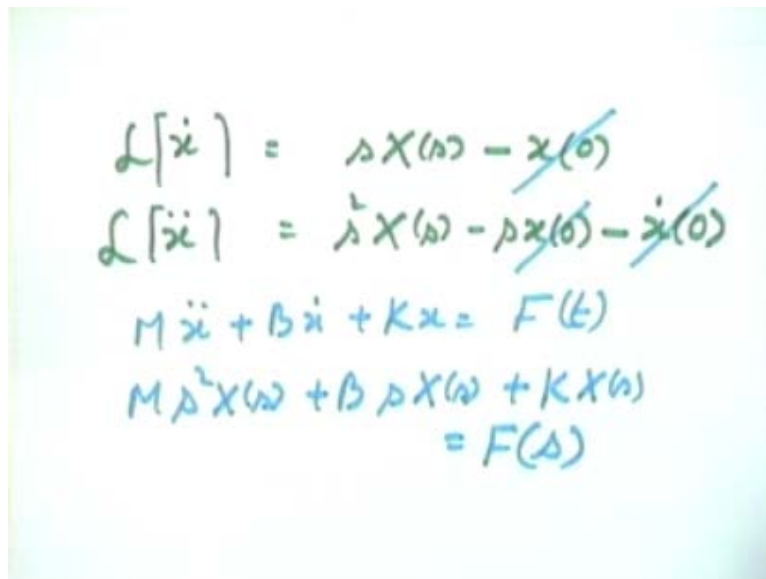 ℒ[ẋ] = sX(s) - x(0)
ℒ[ẍ] = s²X(s) - sx(0) - ẋ(0)
Mẍ + Bẋ + Kx = F(t)
Ms²X(s) + BsX(s) + KX(s)
= F(s)